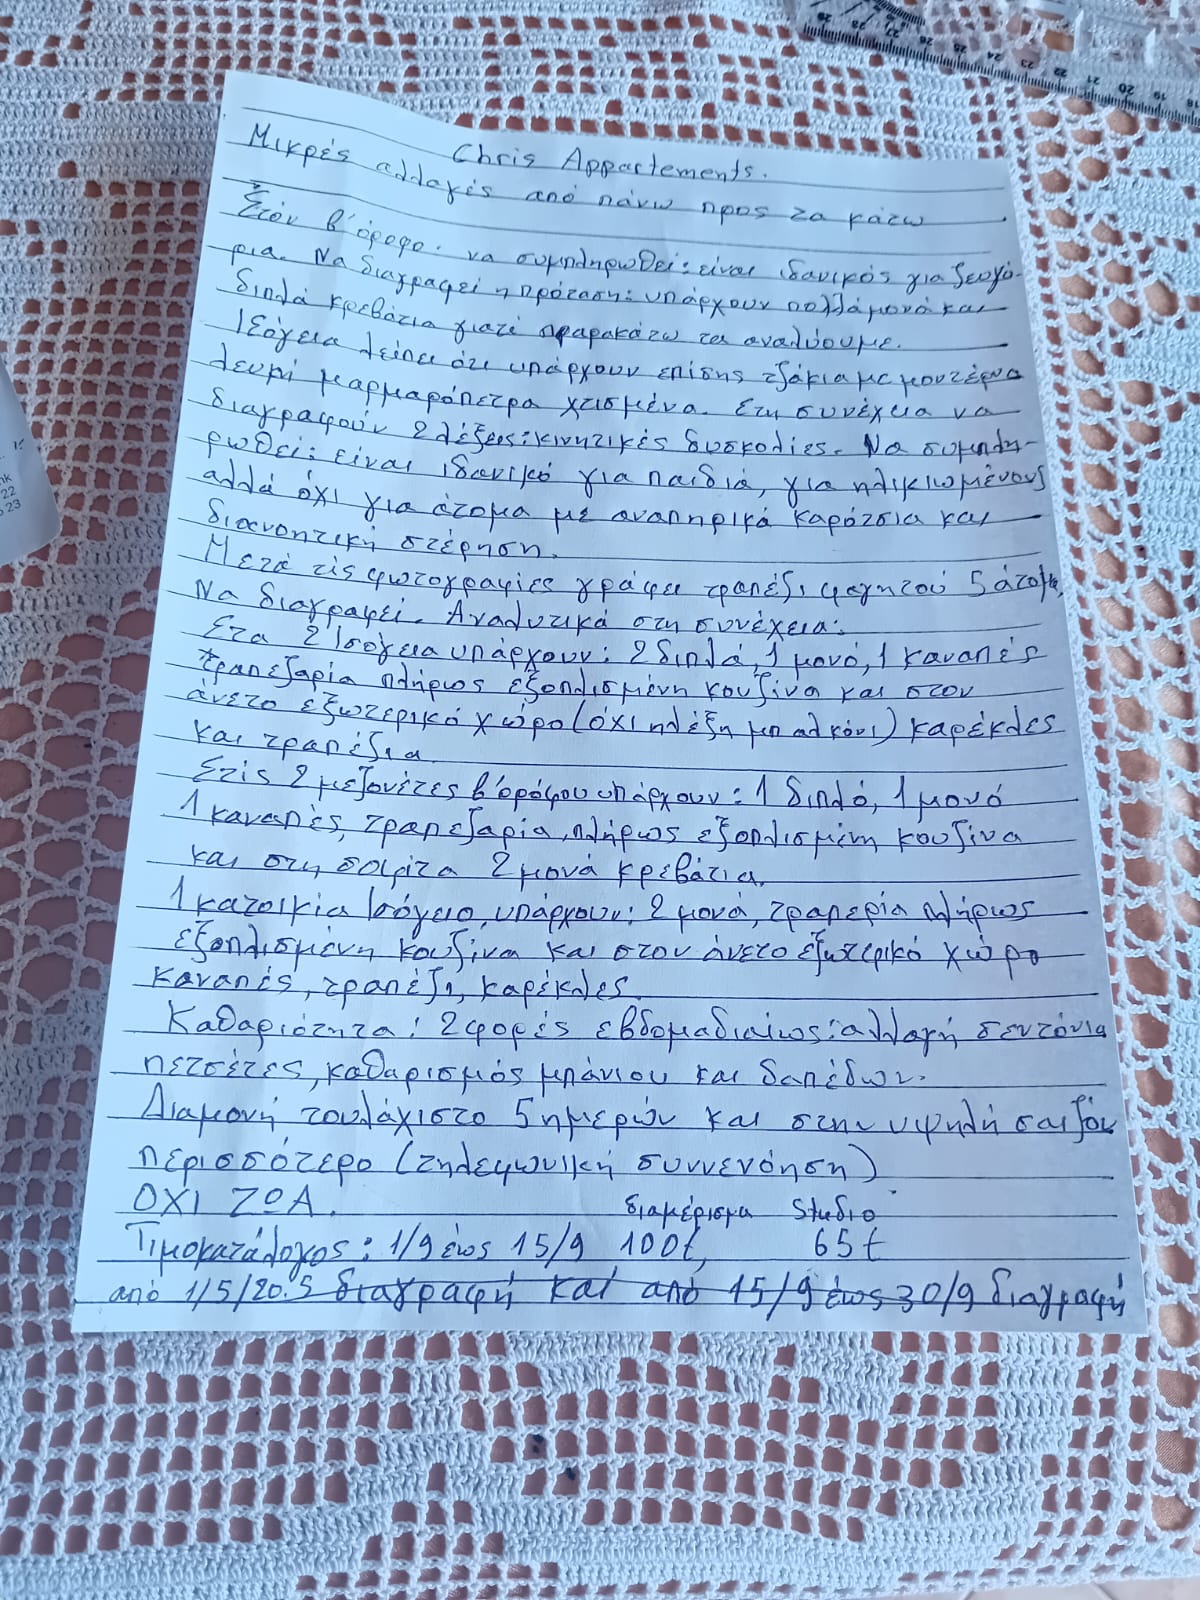 Chris Appartements.
Μικρές αλλαγές από πάνω προς τα κάτω
Στον β' όροφο: να συμπληρωθεί: είναι ιδανικός για ζευγά-
ρια. Να διαγραφεί η πρόταση: υπάρχουν πολλά μονά και
διπλά κρεβάτια γιατί παρακάτω τα αναλύουμε.
Ισόγεια λείπει ότι υπάρχουν επίσης τζάκια με μοντέρνα
λευκή μαρμαρόπετρα χτισμένα. Στη συνέχεια να
διαγραφούν 2 λέξεις: κινητικές δυσκολίες. Να συμπλη-
ρωθεί: είναι ιδανικό για παιδιά, για ηλικιωμένους
αλλά όχι για άτομα με αναπηρικά καρότσια και
διανοητική στέρηση.
Μετά τις φωτογραφίες γράφει τραπέζι φαγητού 5 άτομα,
Να διαγραφεί. Αναλυτικά στη συνέχεια:
Στα 2 Ισόγεια υπάρχουν: 2 διπλά, 1 μονό, 1 καναπές
τραπεζαρία πλήρως εξοπλισμένη κουζίνα και στον
άνετο εξωτερικό χώρο (όχι η λέξη μπαλκόνι) καρέκλες
και τραπέζια.
Στις 2 μεζονέτες β' ορόφου υπάρχουν: 1 διπλό, 1 μονό
1 καναπές, τραπεζαρία, πλήρως εξοπλισμένη κουζίνα
και στη σοφίτα 2 μονά κρεβάτια.
1 κατοικία Ισόγειο, υπάρχουν: 2 μονά, τραπερία πλήρως
εξοπλισμένη κουζίνα και στον άνετο εξωτερικό χώρο
καναπές, τραπέζι, καρέκλες.
Καθαριότητα: 2 φορές εβδομαδιαίως: αλλαγή σεντόνια
πετσέτες, καθαρισμός μπάνιου και δαπέδων.
Διαμονή τουλάχιστο 5 ημερών και στην υψηλή σαιζόν
περισσότερο (τηλεφωνική συννενόηση)
ΟΧΙ ΖΩΑ. διαμέρισμα Studio
Τιμοκατάλογος: 1/9 έως 15/9 100€, 65€
από 1/5/20.5 διαγραφή και από 15/9 έως 30/9 διαγραφή
29 28 27 26 25 24 23 22 21 20 19 18
nk
22
23